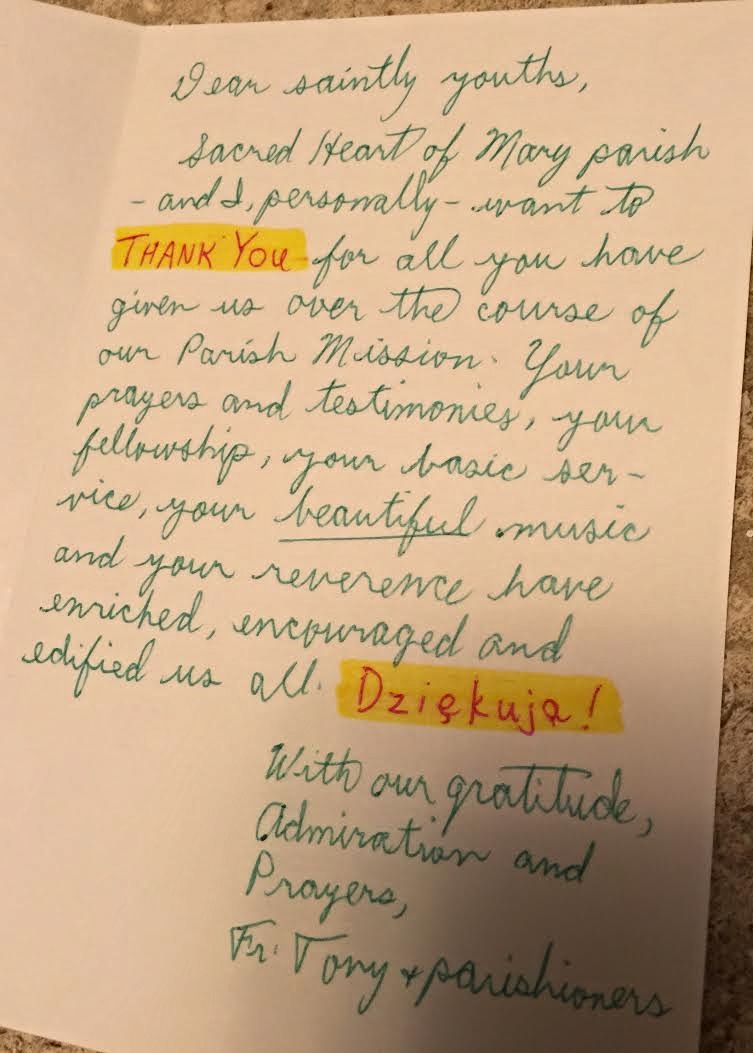 Dear saintly youths,
Sacred Heart of Mary parish
- and I, personally - want to
THANK YOU for all you have
given us over the course of
our Parish Mission. Your
prayers and testimonies, your
fellowship, your basic ser-
vice, your beautiful music
and your reverence have
enriched, encouraged and
edified us all. Dziękuja!
With our gratitude,
Admiration and
Prayers,
Fr. Tony + parishioners